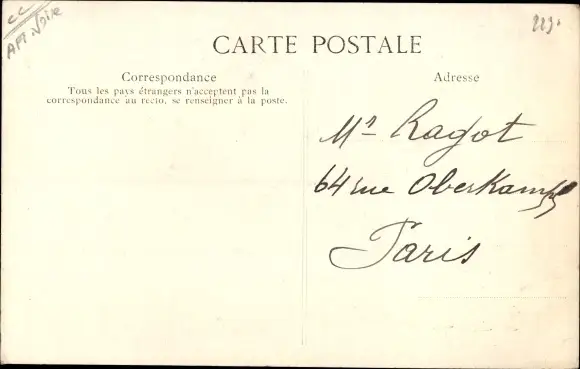 CC
AFF Noire
223.
CARTE POSTALE
Correspondance
Tous les pays étrangers n'acceptent pas la
correspondance au recto, se renseigner à la poste.
Adresse
Mr Ragot
64 rue Oberkampf
Paris